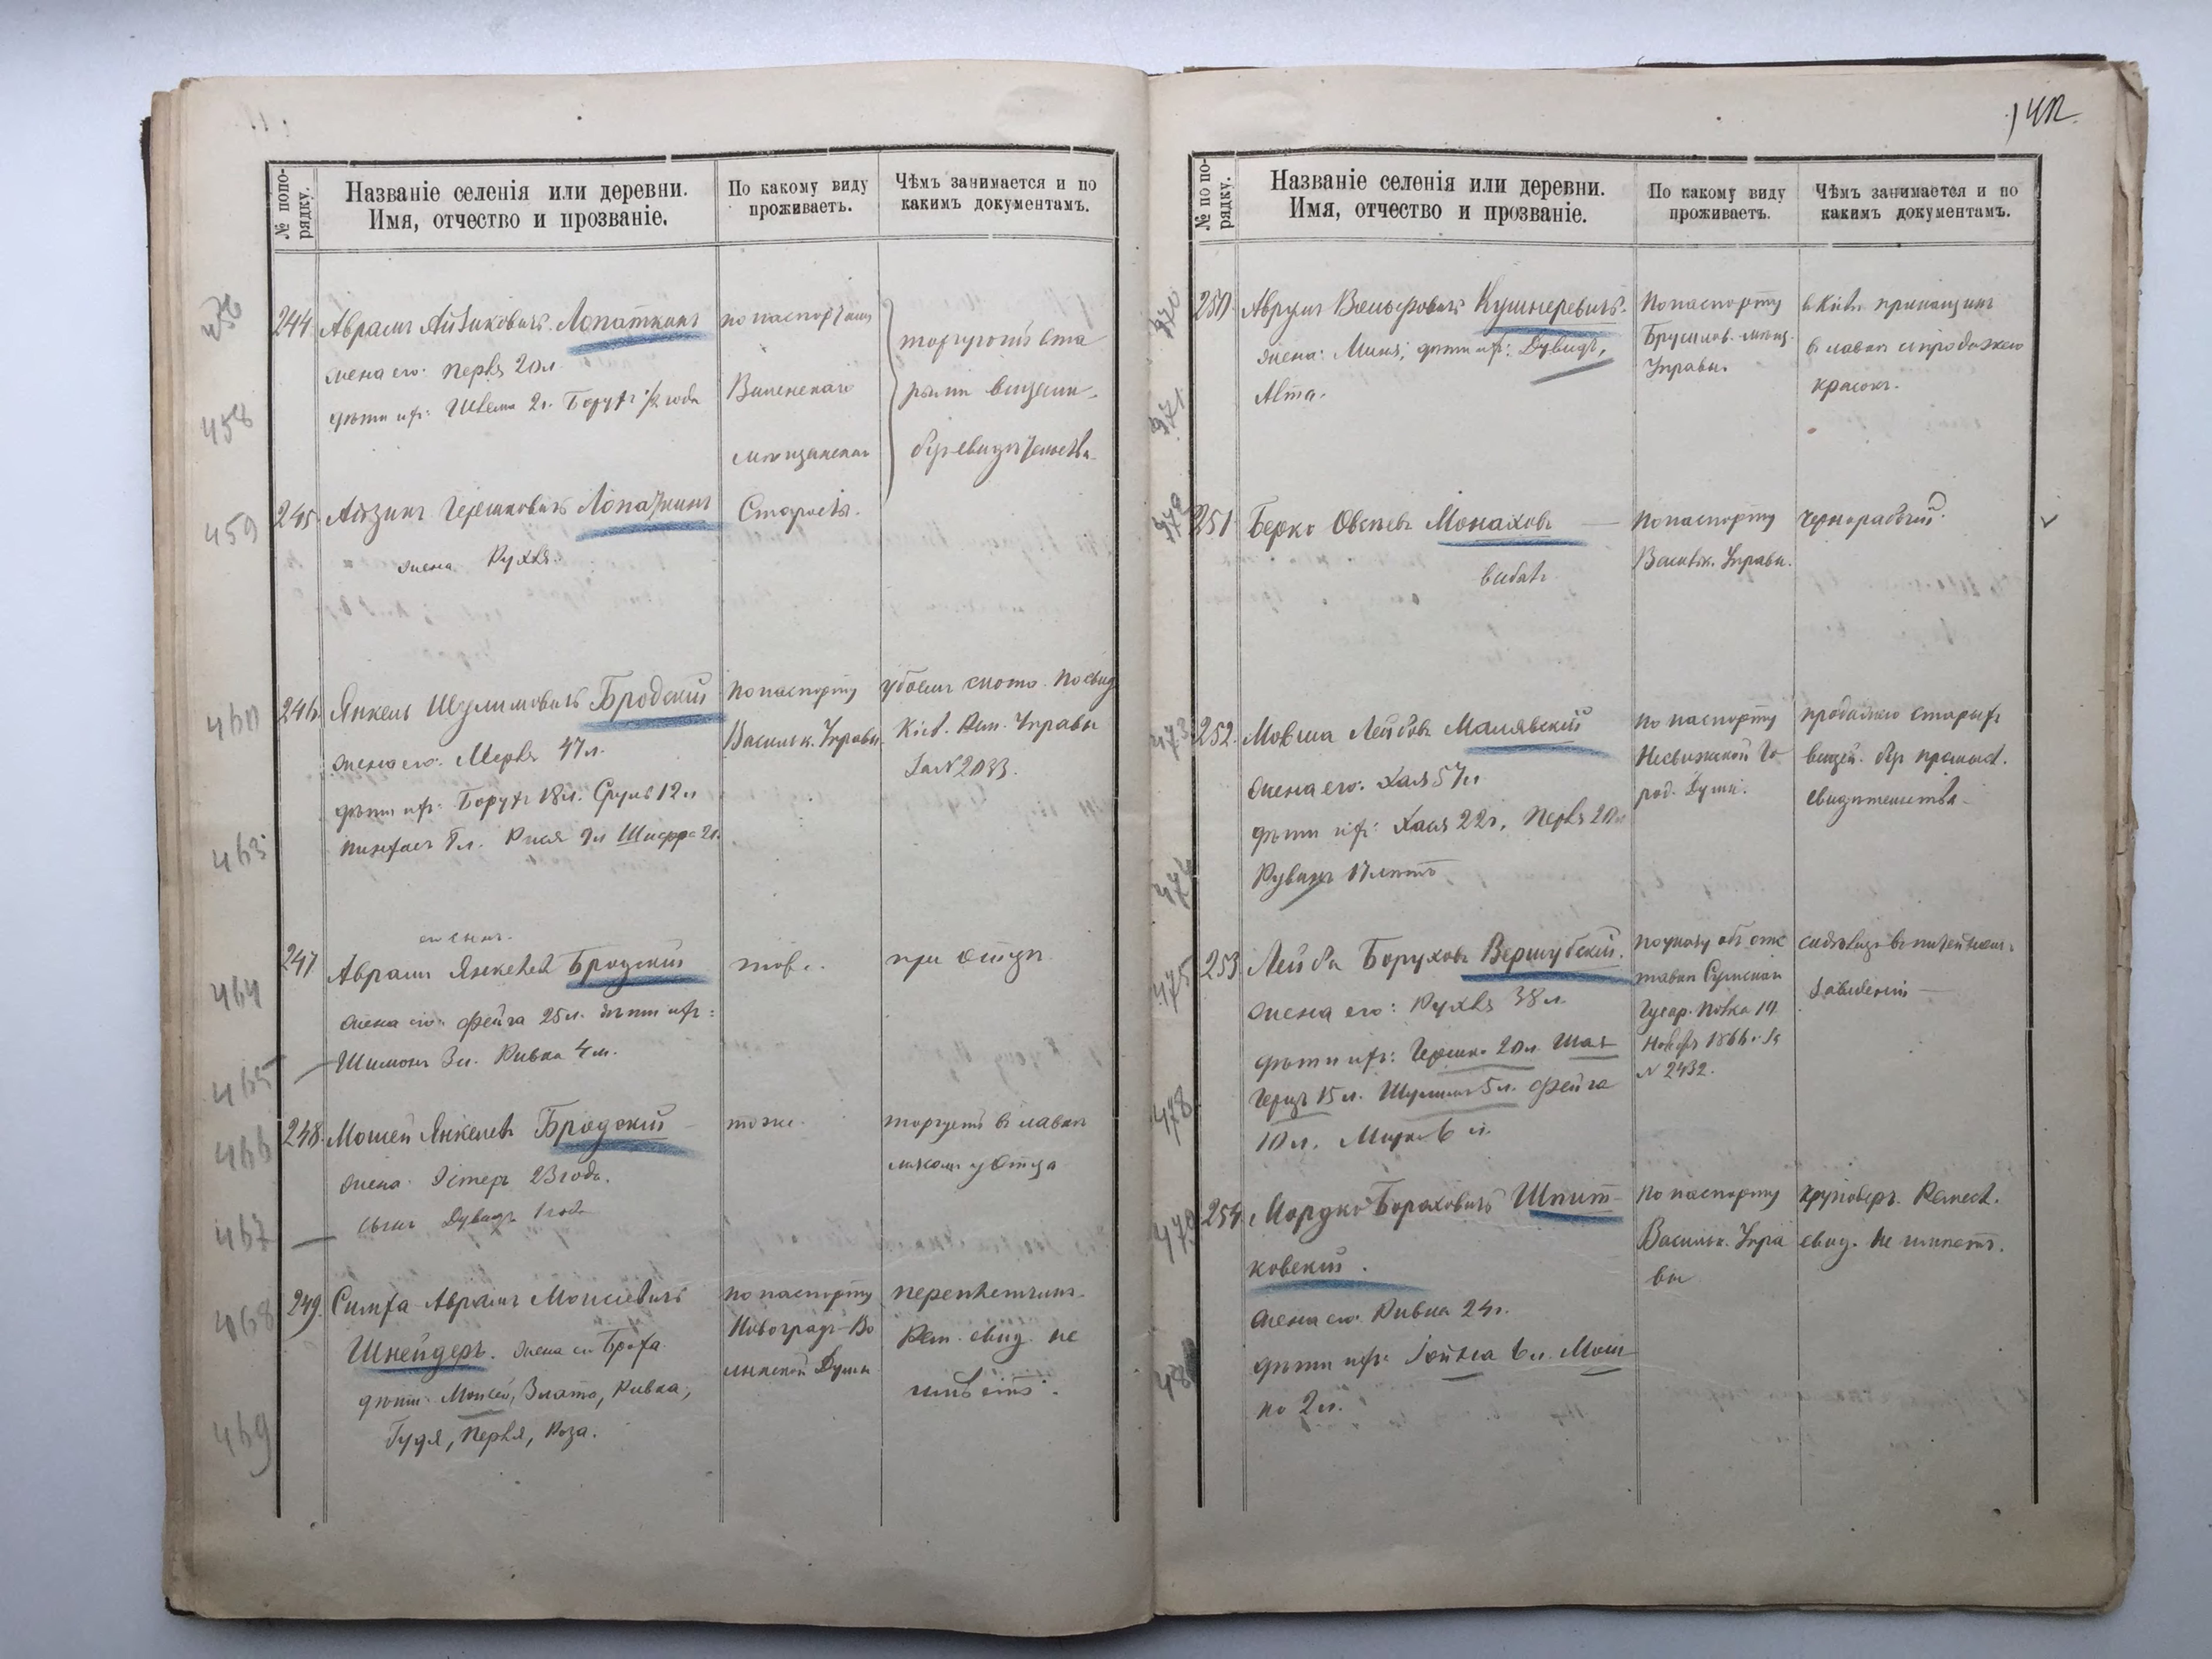 142
№ попо-
рядку.
Названіе селенія или деревни.
Имя, отчество и прозваніе.
По какому виду
проживаетъ.
Чѣмъ занимается и по
какимъ документамъ.
244. Аврамъ Айзиковичъ Лопаткинъ
жена его: Перля 20 л.
дѣти ихъ: 2 г. Борухъ 1/2 года
по паспортамъ
Виленскаго
мѣщанскаго
Старосты.
торгуютъ ста
рыми вещами
безъ свидѣтельства
458
459
245. Айзикъ Гершковичъ Лопаткинъ
жена Рухля.
460
246. Янкель Шулимовичъ Бродскій
жена его: Мерля 47 л.
дѣти ихъ: Борухъ 18 л. Сруль 12 л
Пинхасъ 8 л. Рися 9 л Шифра 2 г.
По паспорту
Васильк. Управы
убоемъ скота. По свид
Кіев. Рем. Управы
за № 2033.
463
его сынъ.
247. Аврамъ Янкелев Бродскій
жена его: Фейга 25 л. дѣти ихъ:
Шимонъ 3 л. Ривка 4 м.
тоже.
при отцѣ
464
465
466
248. Мошей Янкелевъ Бродскій
жена: Эстеръ 23 года.
сынъ Дувидъ 1 год.
тоже.
торгуетъ въ лавкѣ
мясомъ у отца
467
468
249. Симха-Аврамъ Моисеевичъ
Шнейдеръ. жена его Броха
дѣти: Моисей, Злата, Ривка,
Гудя, Перля, Роза.
по паспорту
Новоградъ-Во
лынской Думы
переплетчикъ.
Рем. свид. не
имѣетъ.
469
№ по по-
рядку.
Названіе селенія или деревни.
Имя, отчество и прозваніе.
По какому виду
проживаетъ.
Чѣмъ занимается и по
какимъ документамъ.
250. Аврумъ Вольфовичъ Кушнеревичъ.
жена: Миня; дѣти ихъ: Дувидъ,
Алта.
По паспорту
Брусилов. мѣщ.
Управы.
в Кіевѣ прикащикъ
въ лавкѣ съ продажею
красокъ.
251. Берко Овсеевъ Монаховъ
выбылъ.
По паспорту
Васильк. Управы.
Чернорабочій.
473
252. Мовша Лейбовъ Малявскій
жена его: Хая 57 л
дѣти ихъ: Хася 22 г, Перля 20 л
Рувинъ 17 лѣтъ
По паспорту
Несвижской Го
род. Думы.
продажею старыхъ
вещей. безъ промысл.
свидѣтельства
475
253. Лейба Боруховъ Вершубскій.
жена его: Рухля 38 л.
дѣти ихъ: Гершко 20 л. Шая
Герцъ 15 л. Шулимъ 5 л. Фейга
10 л. 6 л.
По указу объ отс
тавкѣ Сумскаго
Гусар. полка 19
Ноября 1866 г. за
№ 2432.
сидѣлецъ въ питейномъ
заведеніи
478
479
254. Мордко Бораховичъ Шпит
ковскій.
жена его: Ривка 24 г.
дѣти ихъ: 6 л. Мош
ко 2 л.
По паспорту
Васильк. Упра
вы
Ремесл.
свид. не имѣетъ.